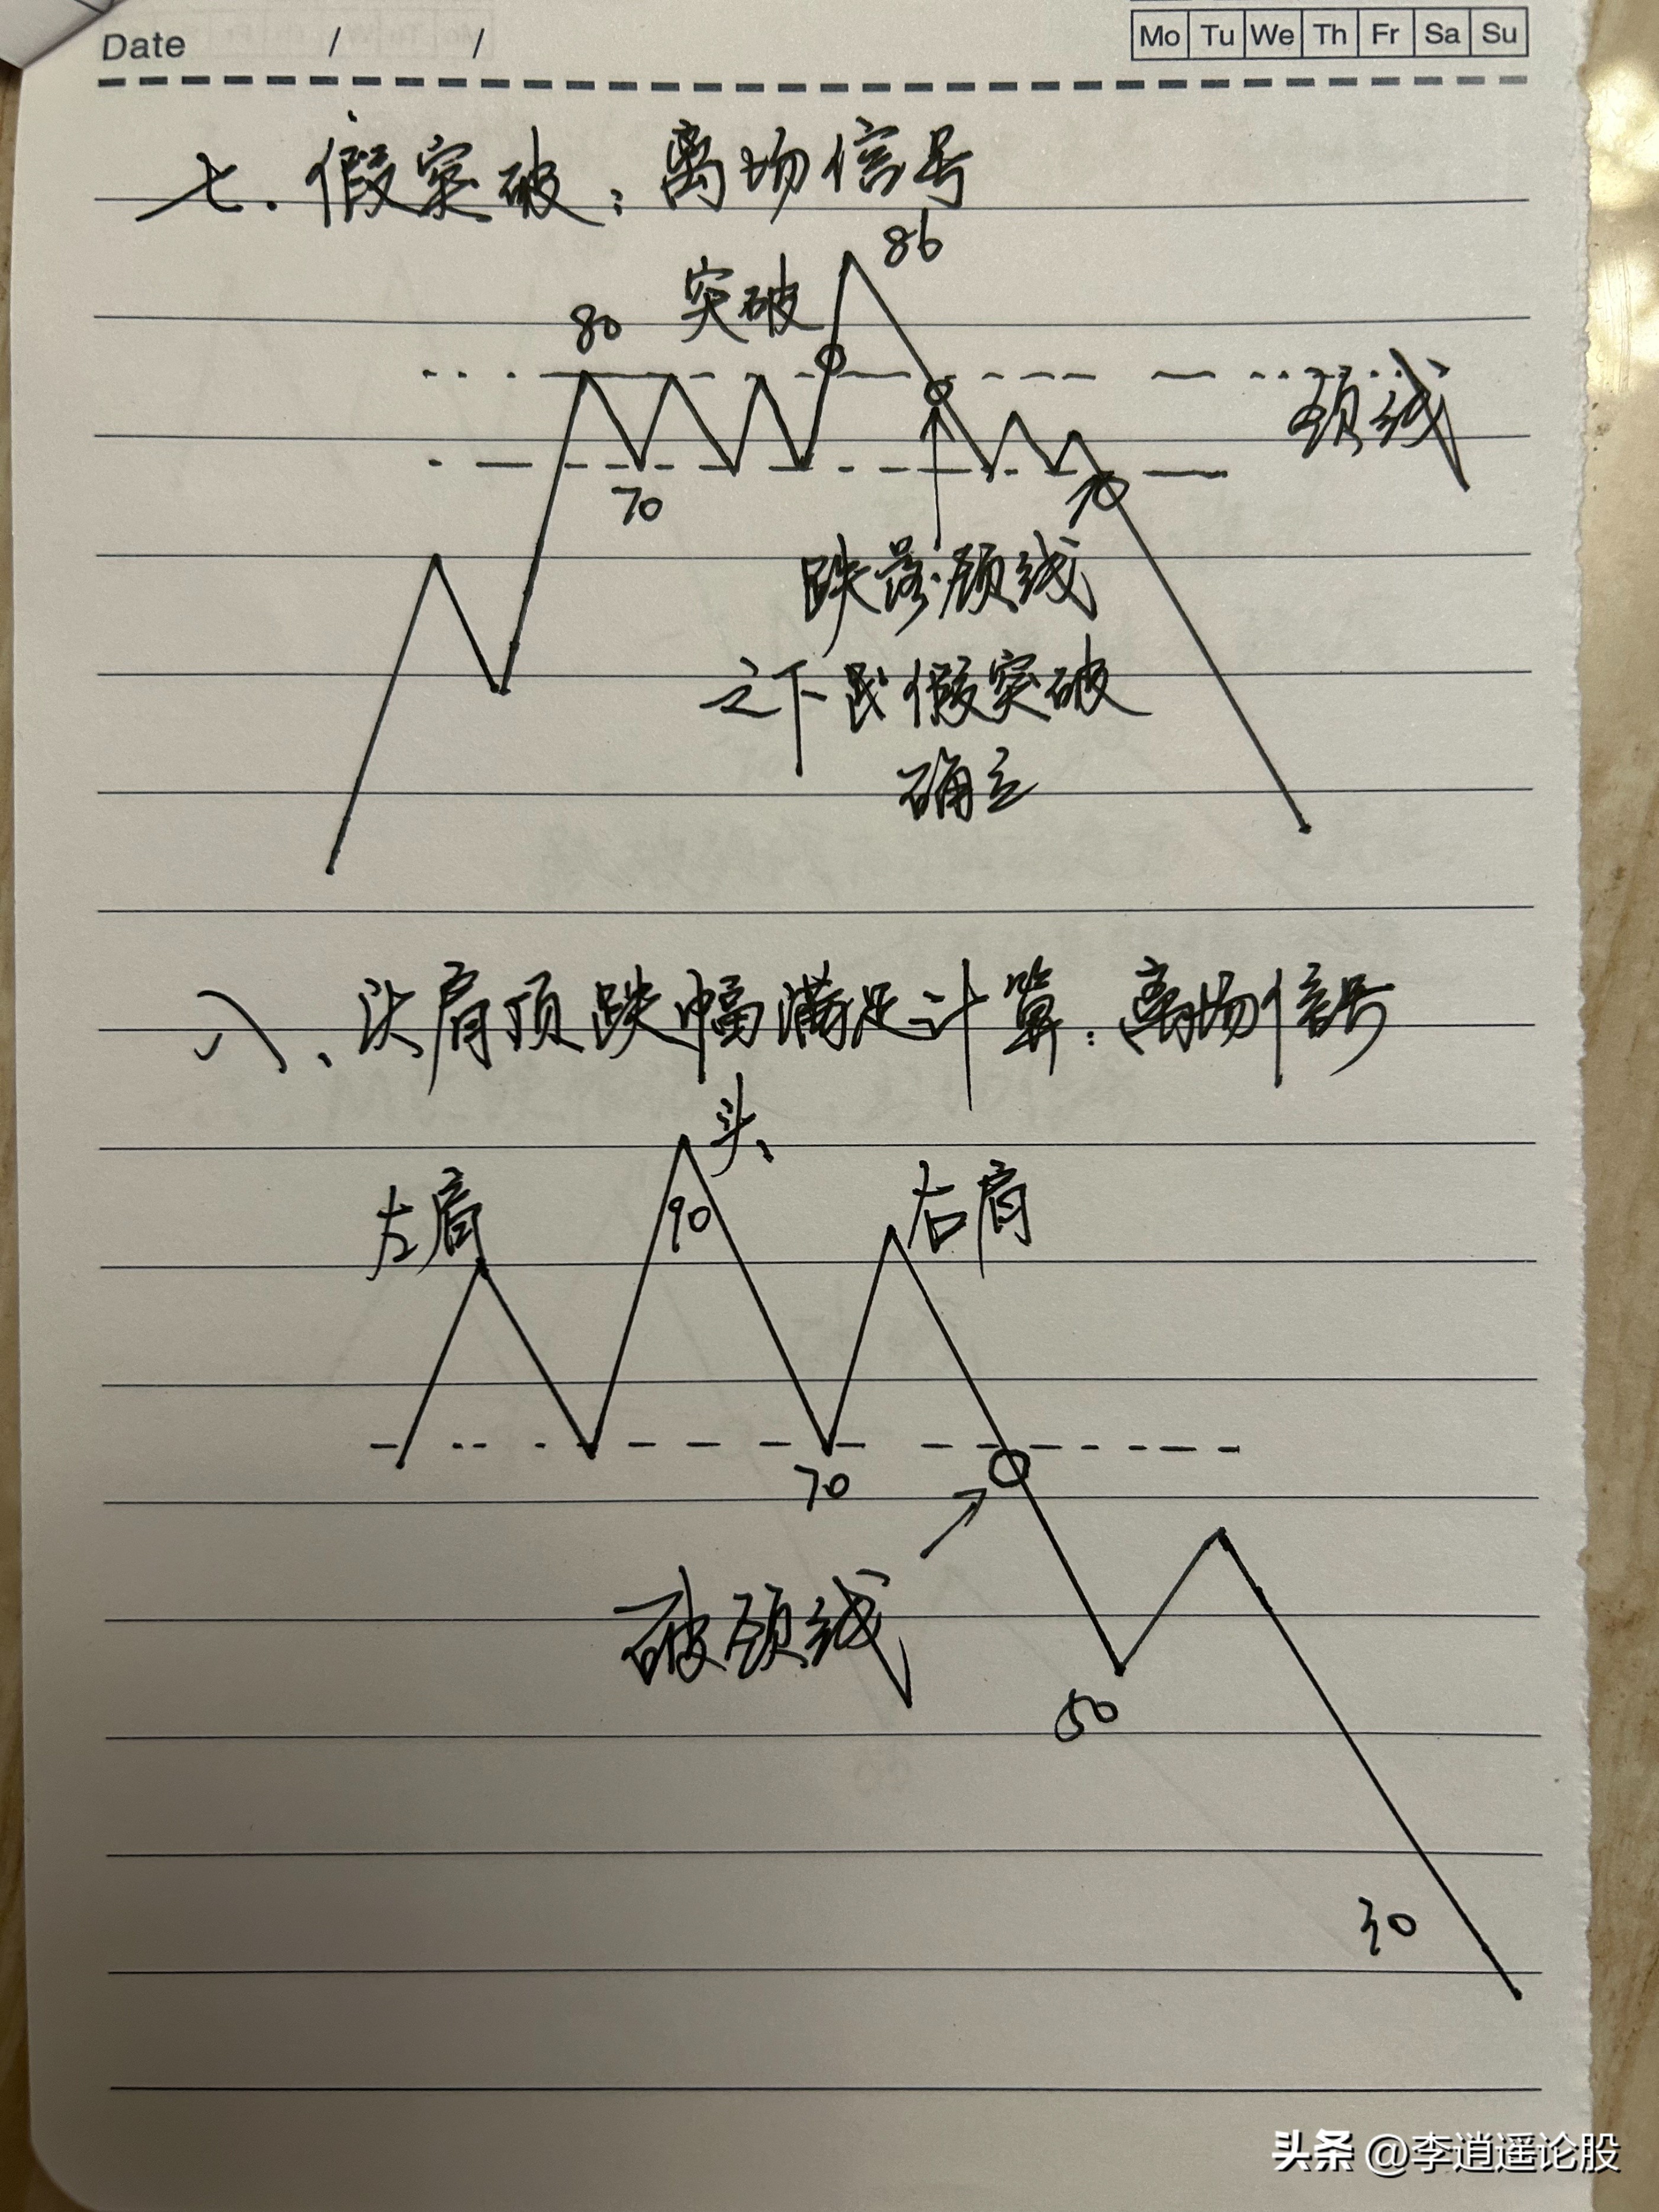 Date / /
Mo Tu We Th Fr Sa Su
七、假突破：离场信号
86
突破
80
颈线
70
跌落颈线
之下
假突破
确立
八、头肩顶跌幅满足计算：离场信号
头
左肩
右肩
90
70
破颈线
50
30
头条 @李逍遥论股